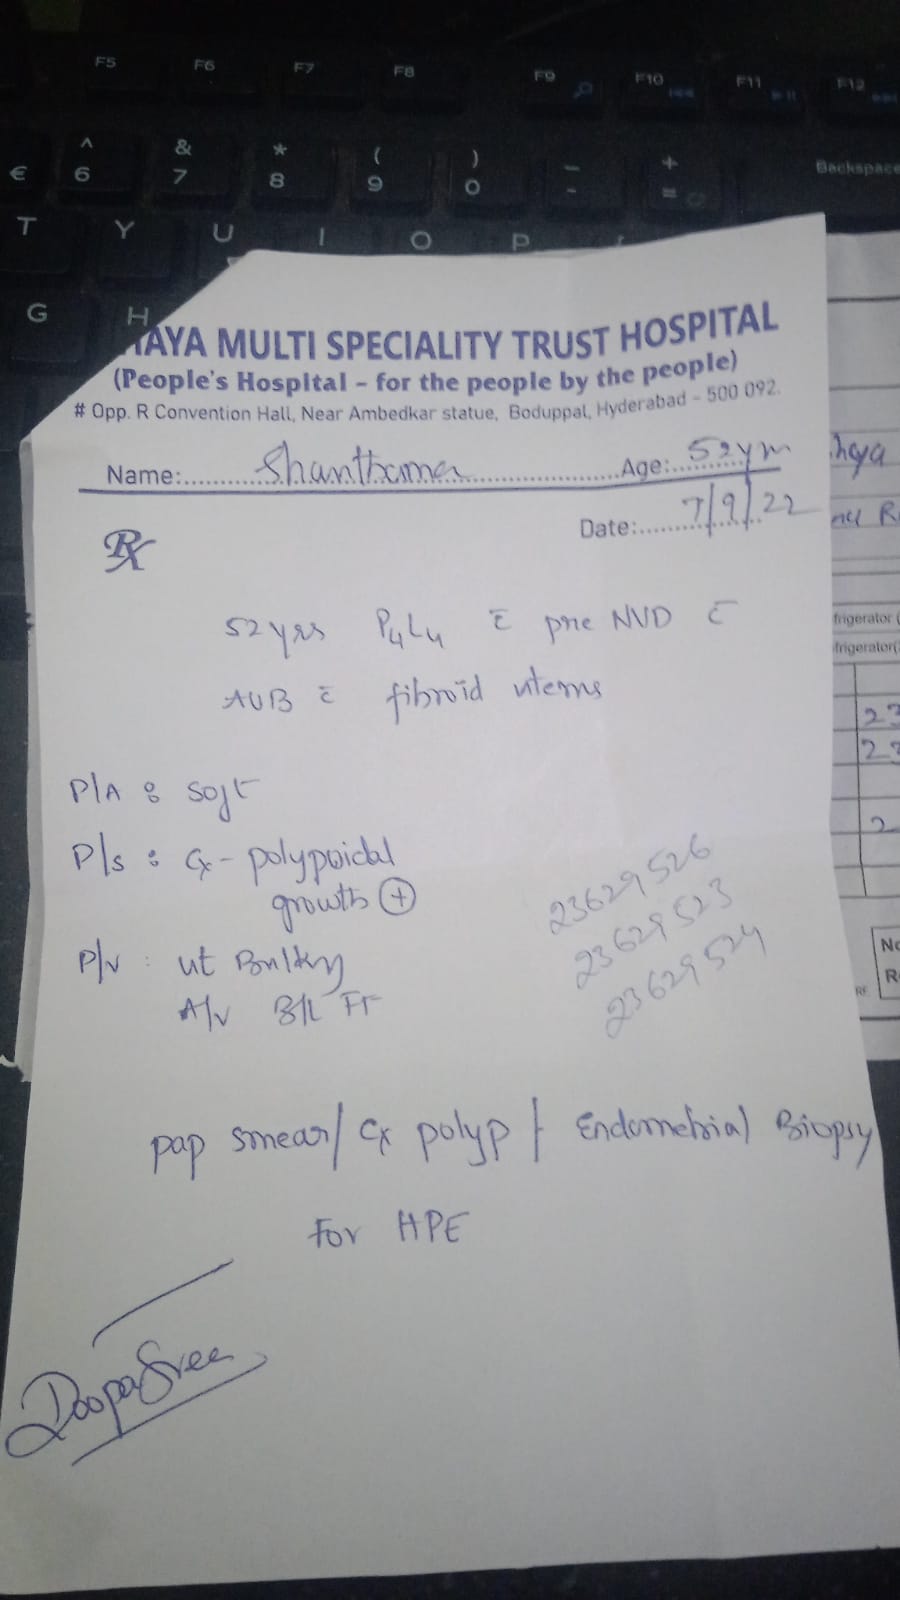 F5 F6 F7 F8 F9 F10 F11 F12
€ ^ 6 & 7 * 8 ( 9 ) 0 _ - + = Backspace
T Y U I O P
G H
AYA MULTI SPECIALITY TRUST HOSPITAL
(People's Hospital - for the people by the people)
# Opp. R Convention Hall, Near Ambedkar statue, Boduppal, Hyderabad - 500 092.
Name: Age: 52y
Date: 7/9/22
Rx
52yrs P4L4 c̄ NVD c̄
AUB c̄ fibroid uterus
P/A : soft
P/s : Cx - polypoidal
growth +
P/v : ut Bulky
A/v B/L FF
23629526
23629523
23629524
pap smear / Cx polyp / Endometrial Biopsy
For HPE
frigerator (
frigerator(
23
23
2
No
R
RF